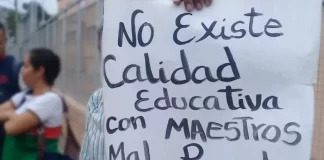 No Existe
Calidad
Educativa
con MAESTROS
Mal